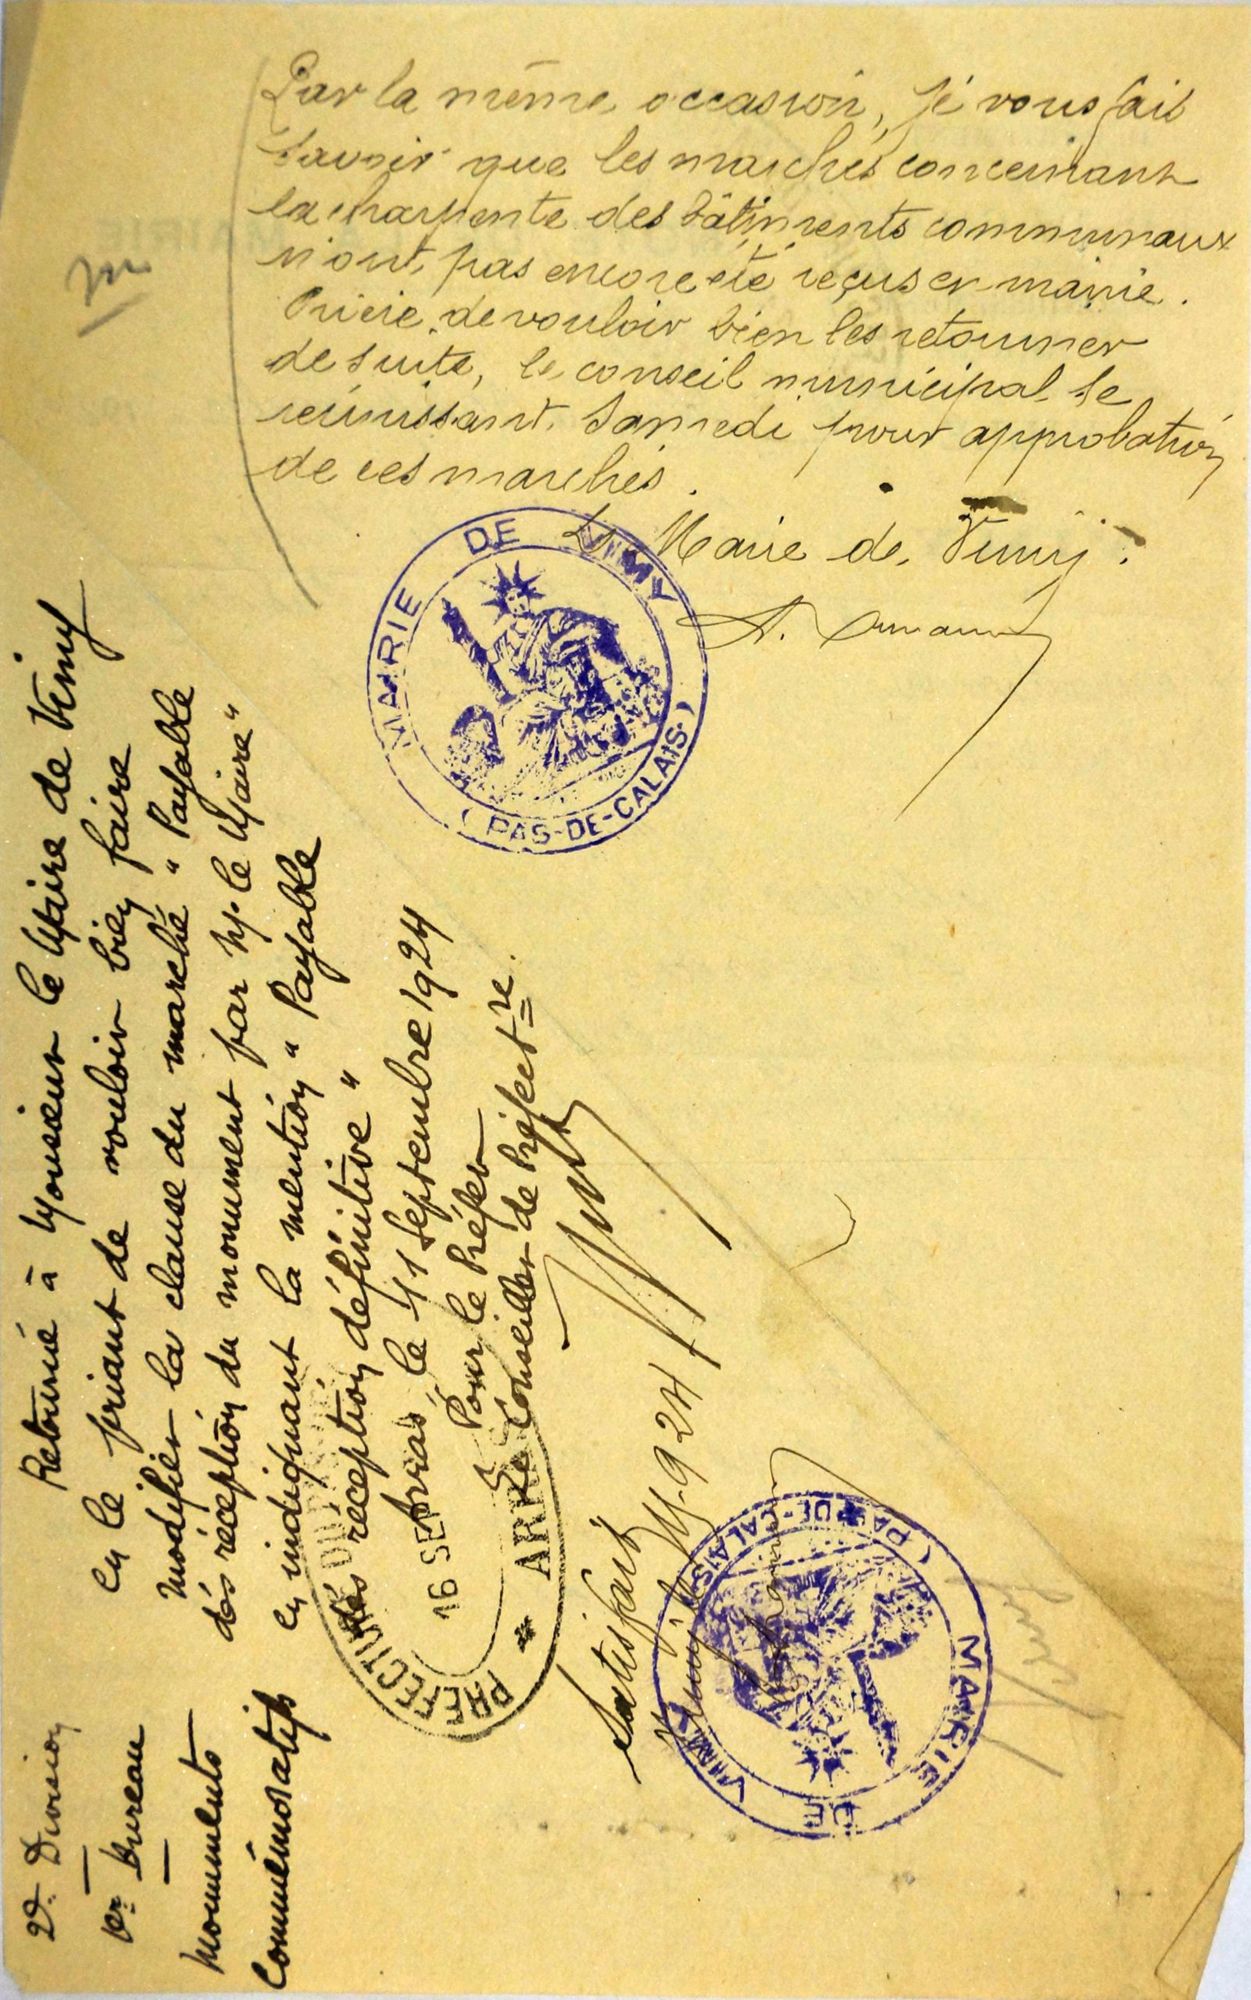 Par la même occasion, je vous fais
savoir que les marchés concernant
la charpente des bâtiments communaux
n'ont pas encore été reçus en mairie.
Prière de vouloir bien les retourner
de suite, le conseil municipal se
réunissant Samedi pour approbation
de ces marchés.
Le Maire de Vimy.
MAIRIE DE VIMY
(PAS-DE-CALAIS)
2e Division
1er Bureau
Monuments
Commémoratifs
Retourné à Monsieur le Maire de Vimy
en le priant de vouloir bien faire
modifier la clause du marché "Payable
dès réception du monument par M. le Maire"
en indiquant la mention "Payable
dès réception définitive"
Arras le 11 Septembre 1924
Pour le Préfet
Le Conseiller de Préfectre.
PREFECTURE DU
16 SEP
ARRAS
Satisfait
Vimy le 924
MAIRIE DE VIMY
(PAS-DE-CALAIS)